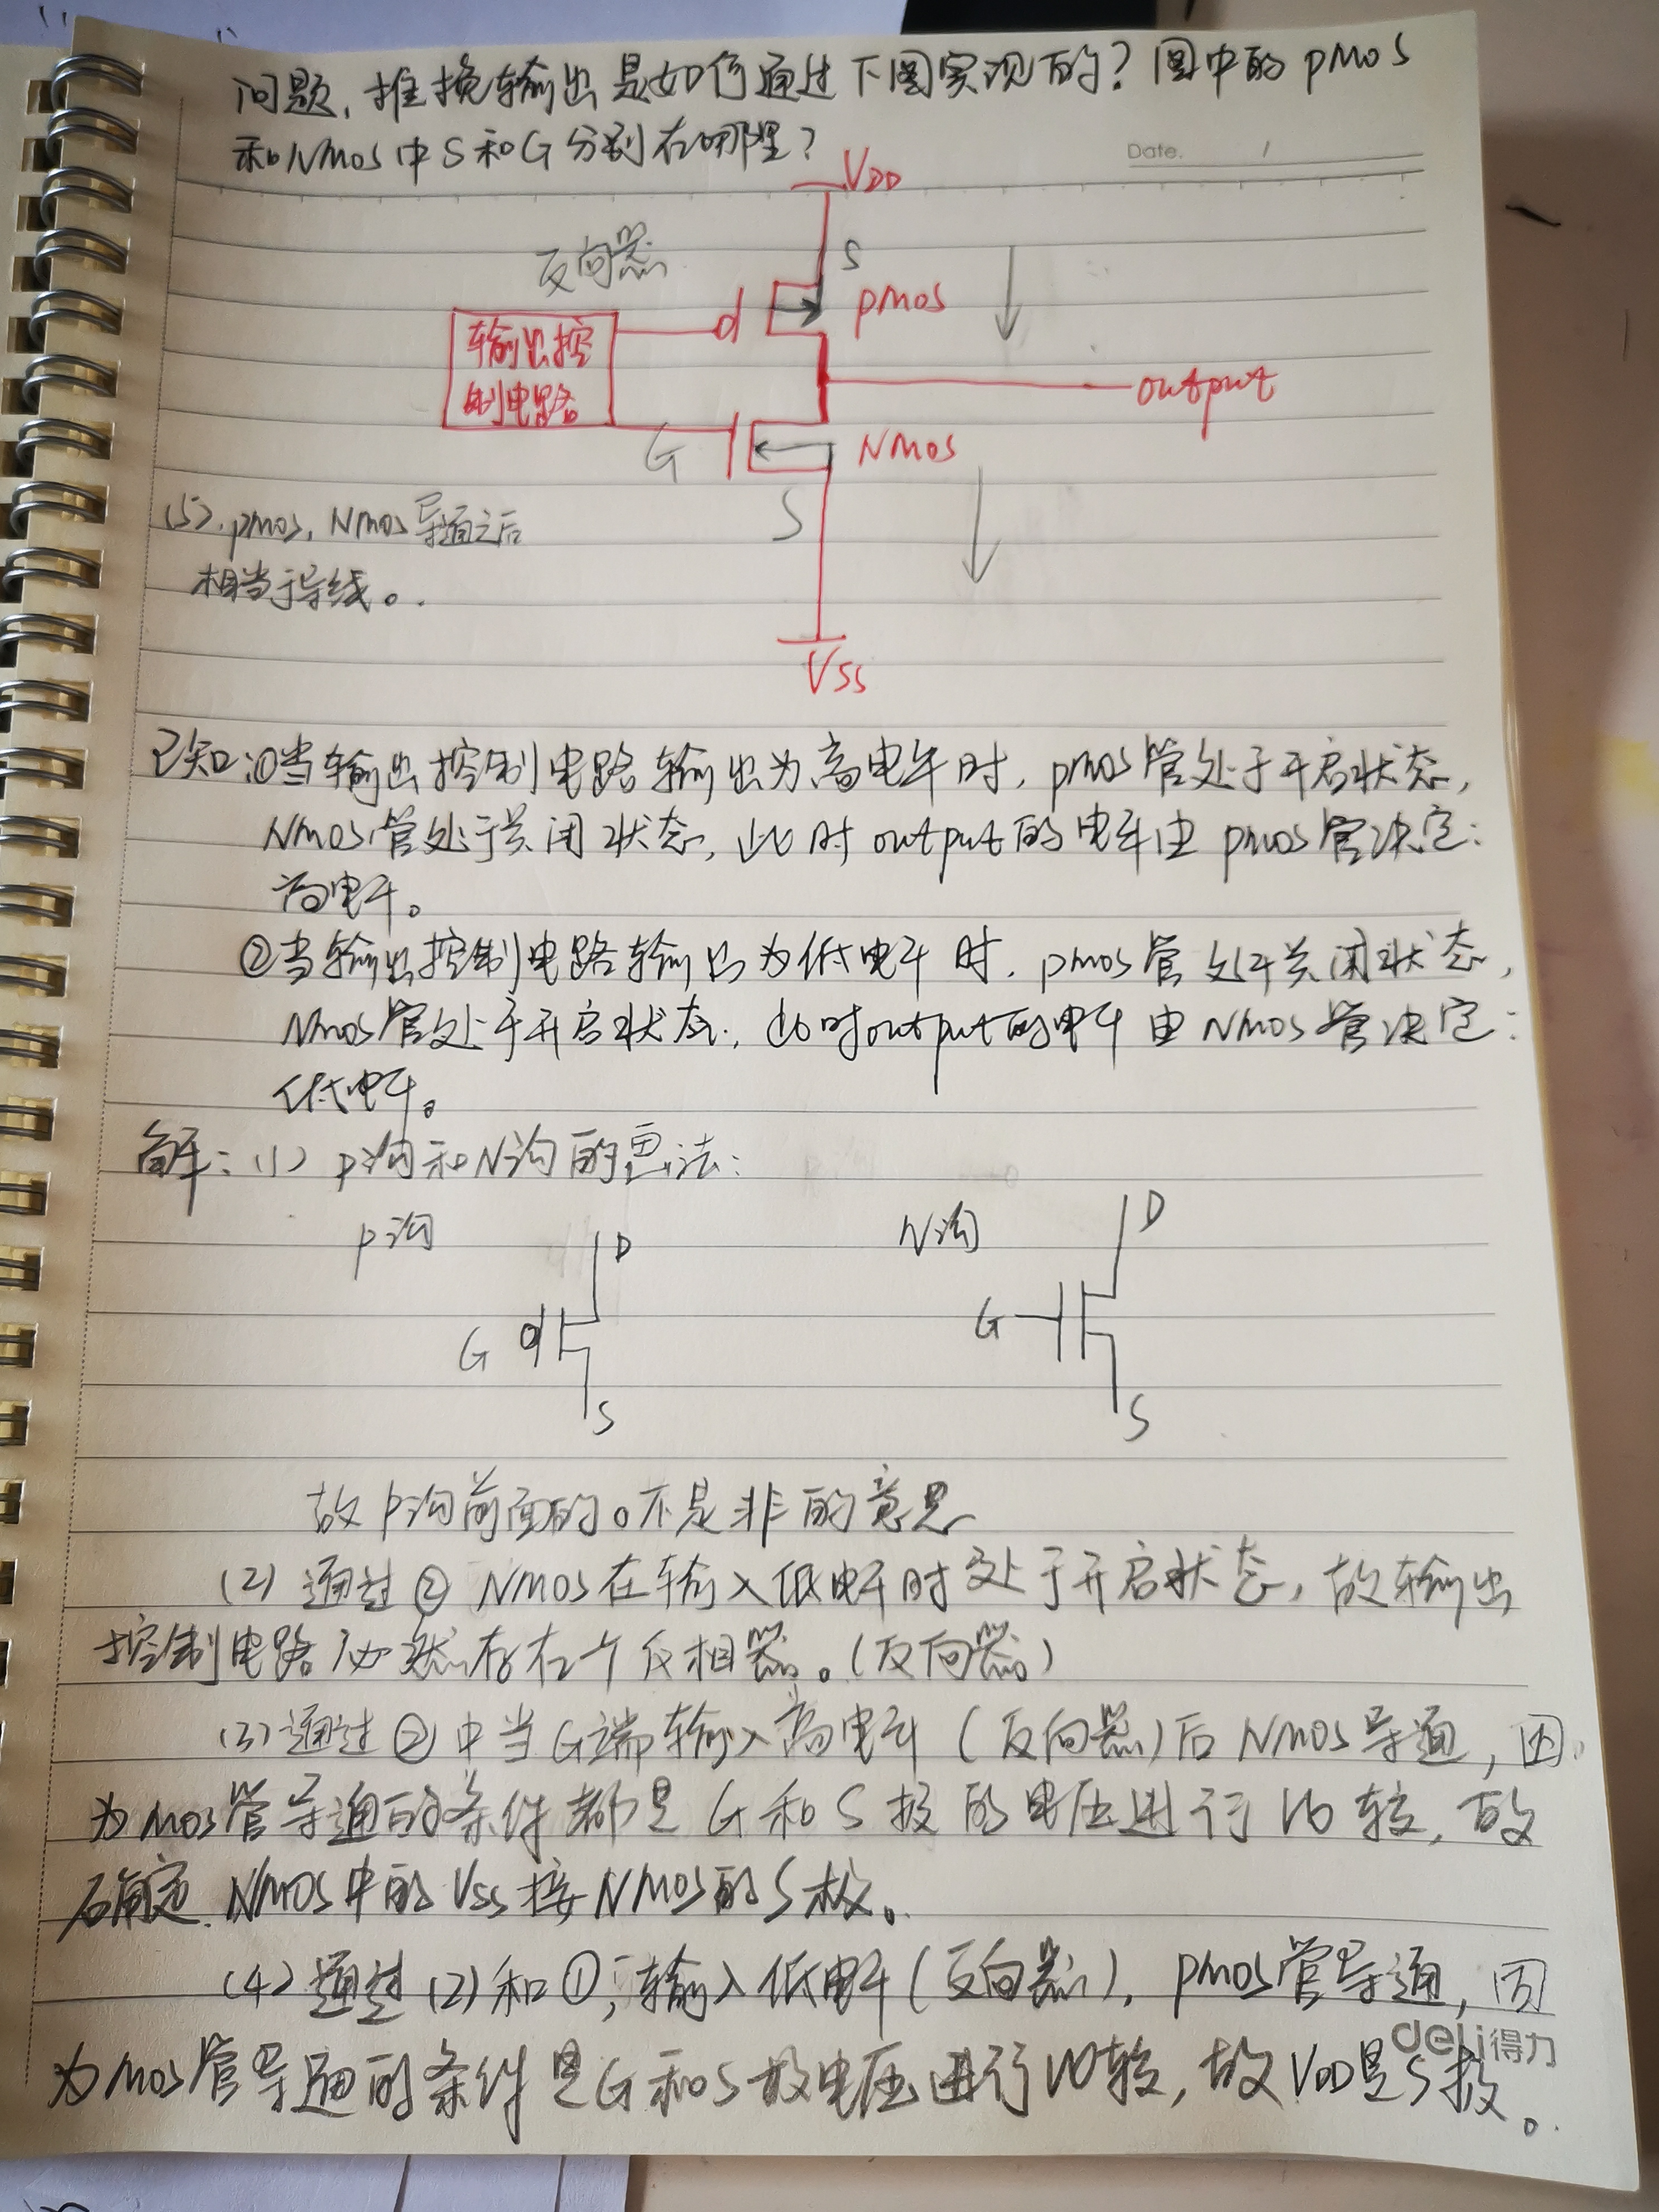 问题,推挽输出是如何通过下图实现的?图中的pmos
和Nmos中S和G分别在哪里?
Date. /
VDD
反向器
S
pmos
输出控
制电路
output
G
Nmos
S
(5).pmos,Nmos导通之后
相当于导线。
Vss
已知:①当输出控制电路输出为高电平时,pmos管处于开启状态,
Nmos管处于关闭状态,此时output的电平由pmos管决定:
高电平。
②当输出控制电路输出为低电平时,pmos管处于关闭状态,
Nmos管处于开启状态,此时output的电平由Nmos管决定:
低电平。
解:(1)p沟和N沟的画法:
p沟 D N沟 D
G G
S S
故p沟前面的。不是非的意思
(2)通过②Nmos在输入低电平时处于开启状态,故输出
控制电路必然存在个反相器。(反向器)
(3)通过②中当G端输入高电平(反向器)后Nmos导通,因
为mos管导通的条件都是G和S极的电压进行比较,故
确定Nmos中的Vss接Nmos的S极。
(4)通过(2)和①,输入低电平(反向器),pmos管导通,因
deli得力
为mos管导通的条件是G和S极电压进行比较,故VDD是S极。